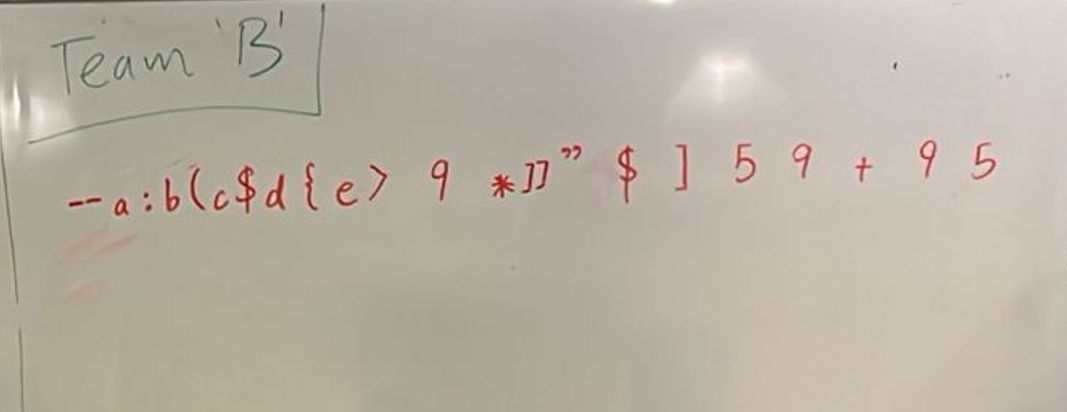 Team 'B'
--a:b(c$d{e> 9 *]]” $ ] 5 9 + 9 5